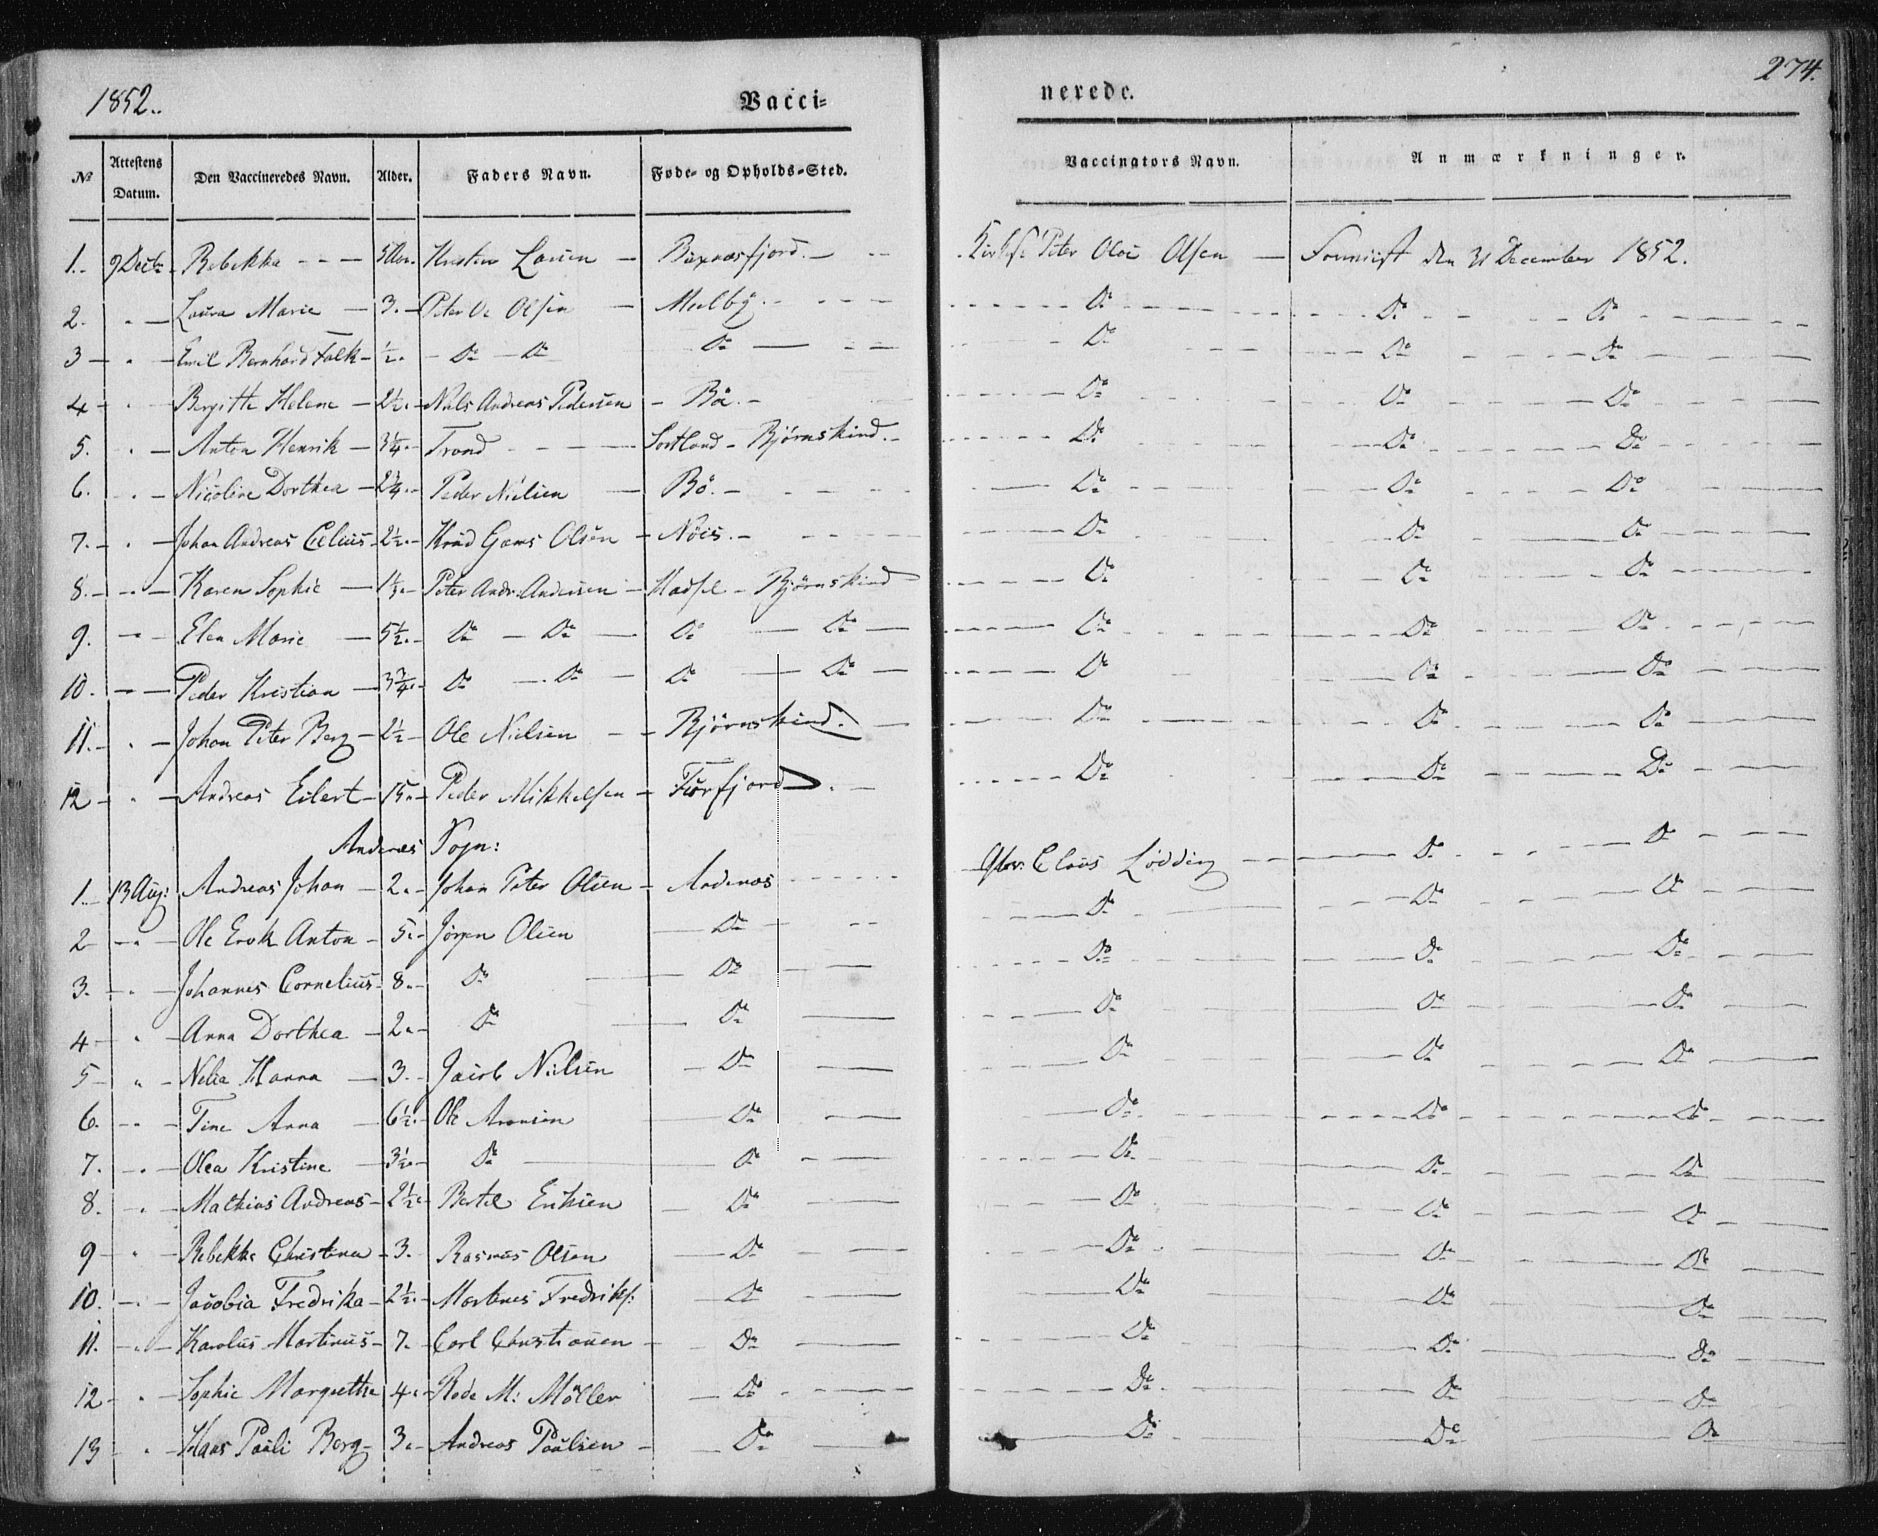 1852.
Vacci=
nerede.
274.
No Attestens Datum. Den Vaccineredes Navn. Alder. Faders Navn. Føde- og Opholds-Sted. Vaccinators Navn. Anmærkninger.
1. 9 Rebekka Buxnæsfjord. Peter Olai Olsen den 31 December 1852.
2. Laura Marie 3. Peter Ol Olsen Melby. Do Do Do
3 Emil Bernhard Falk ½. Do Do Do Do Do Do
4 Bergitte Helene 2½. Niels Andreas Pedersen Bø. Do Do Do
5. Anton Henrik 3¼. Trond Sortland Bjørnskind. Do Do Do
6. Nicoline Dorthea 2¼. Peder Nielsen Bø. Do Do Do
7. Johan Andreas 2½. Olsen Nøis. Do Do Do
8. Karen Sophie Peter Andr. Andersen Hadsel Bjørnskind Do Do Do
9. Elen Marie 5½. Do Do Do Do Do Do Do
10. Peder Kristian 3¾. Do Do Do Do Do Do Do
11. Johan Peter Berg 2½ Ole Nielsen Bjørnskind. Do Do Do
12 Andreas Eilert 15. Peder Mikkelsen Forfjord. Do Do Do
Andenæs Sogn:
1. 13 Aug: Andreas Johan 2. Johan Peter Olsen Andenæs Claus Lødding Do Do
2 Ole Erik Anton 5. Jørgen Olsen Do Do Do Do
3. Johannes Cornelius 8. Do Do Do Do Do
4 Anna Dorthea 2. Do Do Do Do Do
5 Hanna 3. Jacob Nielsen Do Do Do Do
6. Tine Anna 6½. Ole Aronsen Do Do Do Do
7. Olea Kristine 3½. Do Do Do Do Do
8. Mathias Andreas 2½. Bertel Eriksen Do Do Do Do
9 Rebekka Christina 3. Rasmus Olsen Do Do Do Do
10. Jacobia Fredrika 2½. Fredriks: Do Do Do Do
11. Karolus Martinus 7. Carl Christiansen Do Do Do Do
12 Sophie Margrethe 4. M: Møller Do Do Do Do
13 Hans Pauli Berg 3. Andreas Paulsen Do Do Do Do